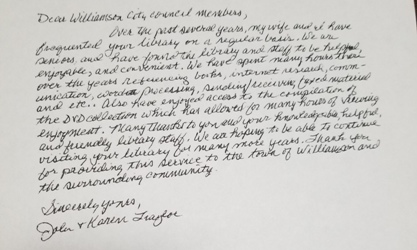 Dear Williamson City council members,
Over the past several years, my wife and I have
frequented your library on a regular basis. We are
seniors, and have found the library and staff to be helpful,
enjoyable, and convenient. We have spent many hours there
over the years referencing books, internet research, comm-
unication, word processing, sending/receiving faxed material
and etc.. Also have enjoyed access to the compilation of
the DVD collection which has allowed for many hours of viewing
enjoyment. Many thanks to you and your knowledgable, helpful,
and friendly library staff. We are hoping to be able to continue
visiting your library for many more years. Thank you
for providing this service to the town of Williamson and
the surrounding community.
Sincerely yours,
John & Karen